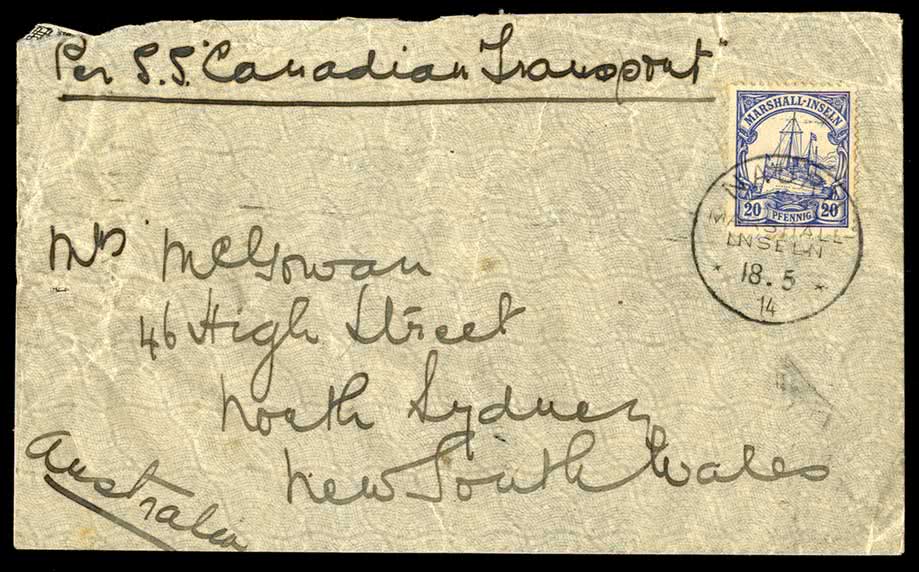 Per S.S. "Canadian Transport"
MARSHALL-INSELN
20 PFENNIG 20
MARSHALL-
INSELN
* 18.5 *
14
Mrs McGowan
46 High Street
North Sydney
New South Wales
Australia